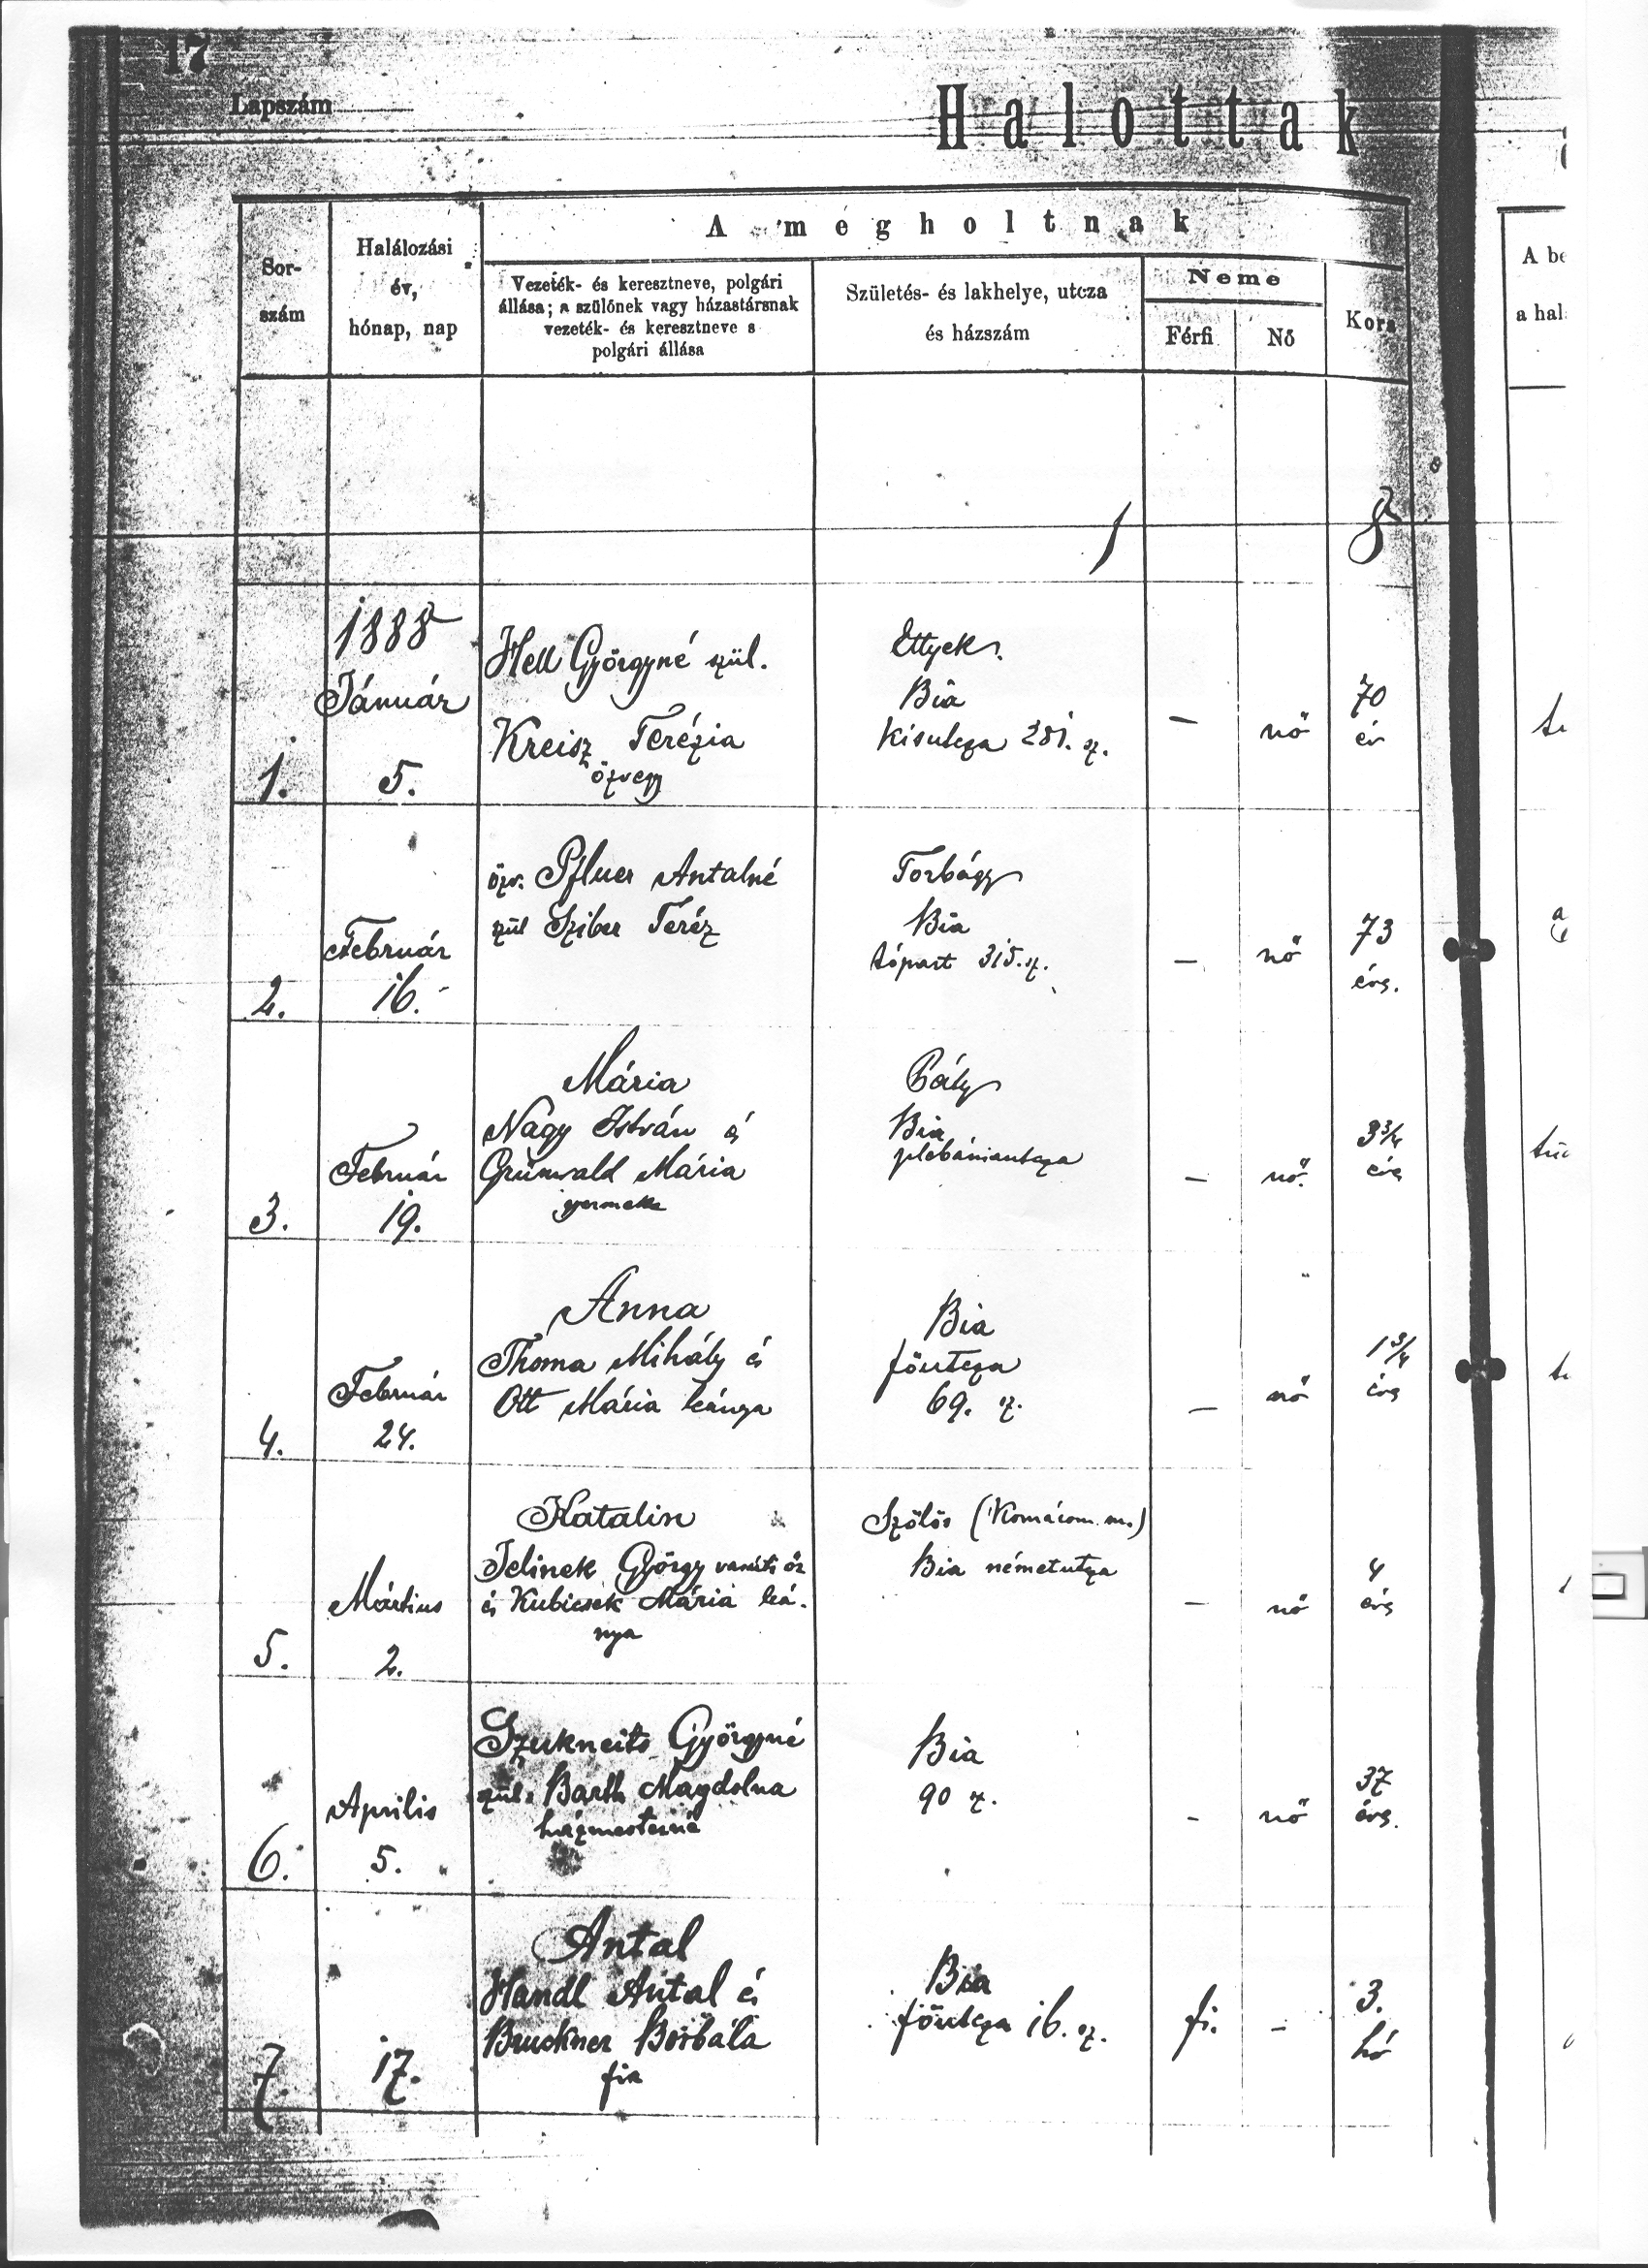 17
Lapszám
Halottak
A megholtnak
A be
Sor-
szám
Halálozási
év,
hónap, nap
Vezeték- és keresztneve, polgári
állása; a szülőnek vagy házastársnak
vezeték- és keresztneve s
polgári állása
Születés- és lakhelye, utcza
és házszám
Neme
Férfi
Nő
Kora
a hal
1 8
1.
1888
Január
5.
Hell Györgyné szül.
Kreisz Terézia
özvegy
Ettyek
Bia
Kisutcza 281. sz.
–
nő
70
év
2.
Február
16.
özv. Pfluer Antalné
szül Sziber Teréz
Torbágy
Bia
tópart 315. sz.
–
nő
73
éves.
3.
Február
19.
Mária
Nagy István és
Grünwald Mária
gyermeke
Bia
plebániautcza
–
nő.
3 3/4
éves
4.
Február
24.
Anna
Thoma Mihály és
Ott Mária leánya
Bia
főutcza
69. sz.
–
nő
1 3/4
éves
5.
Mártius
2.
Katalin
Jelinek György vasúti őr
és Kubicsek Mária leá-
nya
Szőlős (Komárom. m.)
Bia németutcza
–
nő
4
éves
6.
Aprilis
5.
György­né
szül. Barth Magdolna
házmesterné
Bia
90 sz.
–
nő
37
éves.
7.
17.
Antal
Handl Antal és
Bruckner Borbála
fia
Bia
főutcza 16. sz.
fi.
–
3.
hó